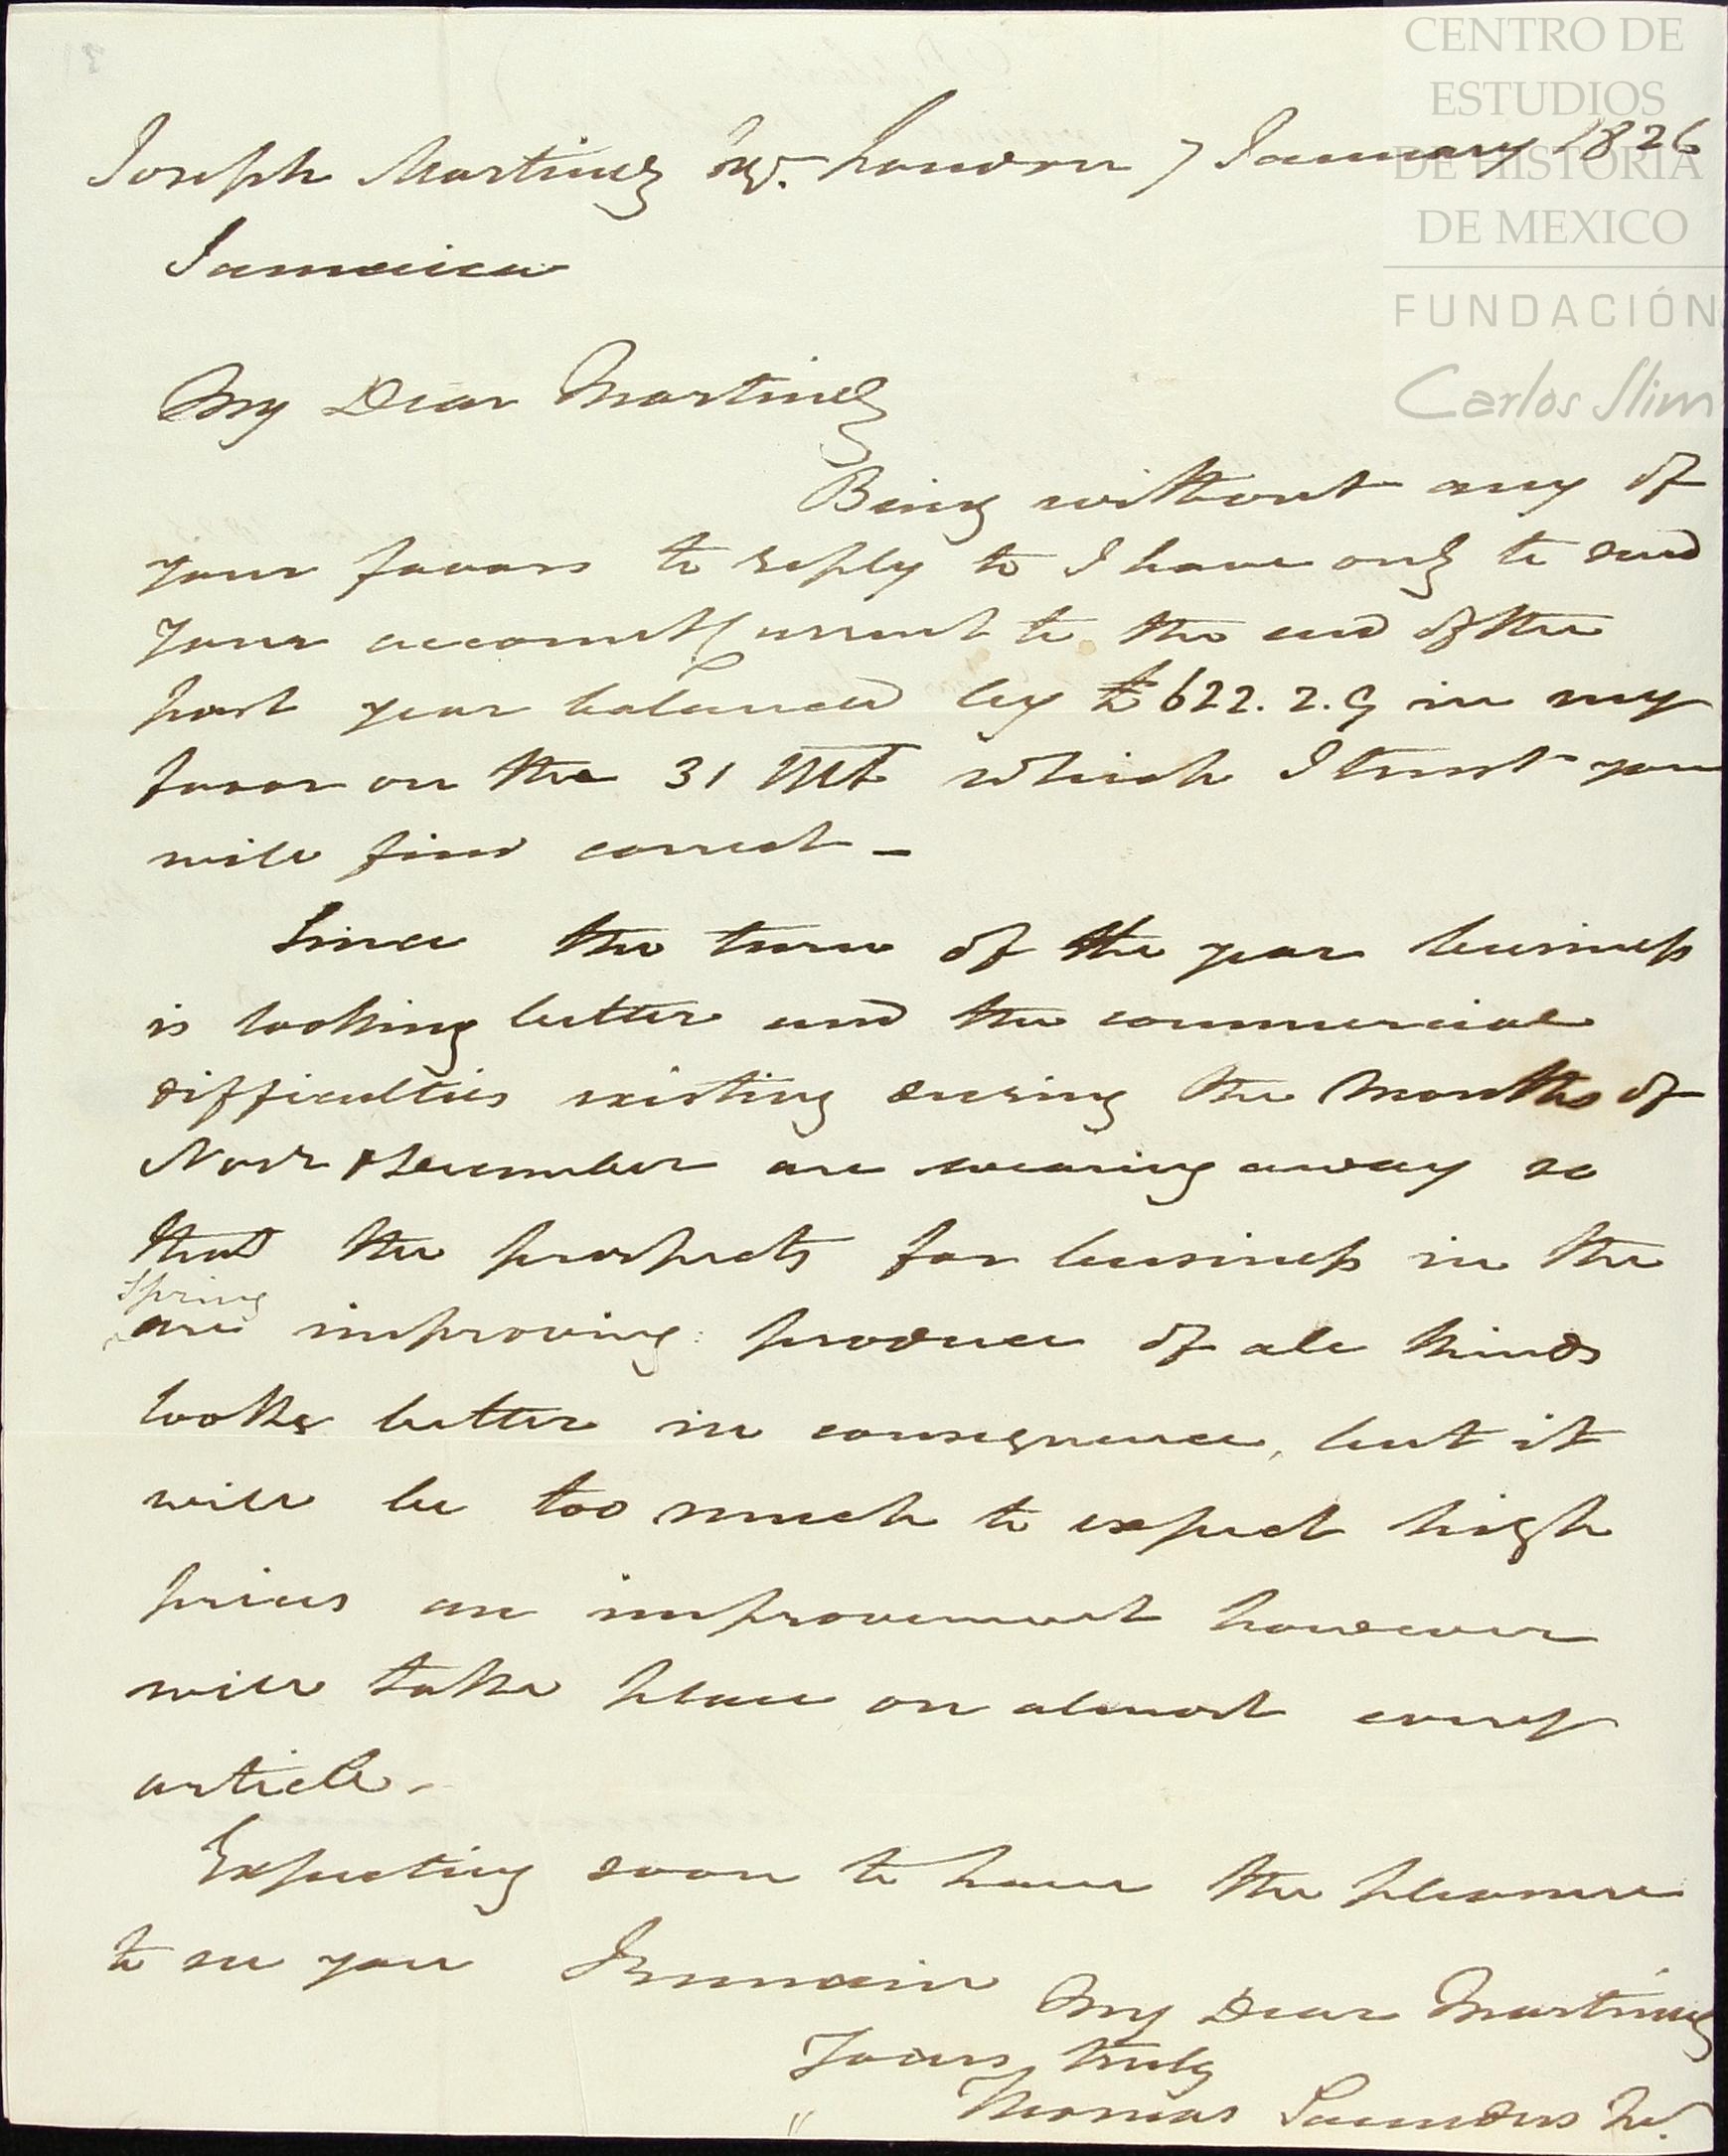 CENTRO DE
ESTUDIOS
DE HISTORIA
DE MEXICO
FUNDACIÓN
Carlos Slim
Joseph Martinez Esqr. London 7 January 1826
Jamaica
My Dear Martinez
Being without any of
your favors to reply to I have only to send
your account Current to the end of the
past year balanced by £622.2.9 in my
favor on the 31 Ulto which I trust you
will find correct –
Since the turn of the year business
is looking better and the commercial
difficulties existing during the Months of
Novr & December are wearing away so
that the prospects for business in the
Spring
are improving: produce of all kinds
looks better in consequence, but it
will be too much to expect high
prices an improvement however
will take place on almost every
article.
Expecting soon to have the pleasure
to see you I remain My Dear Martinez
Yours truly
Thomas Saunders